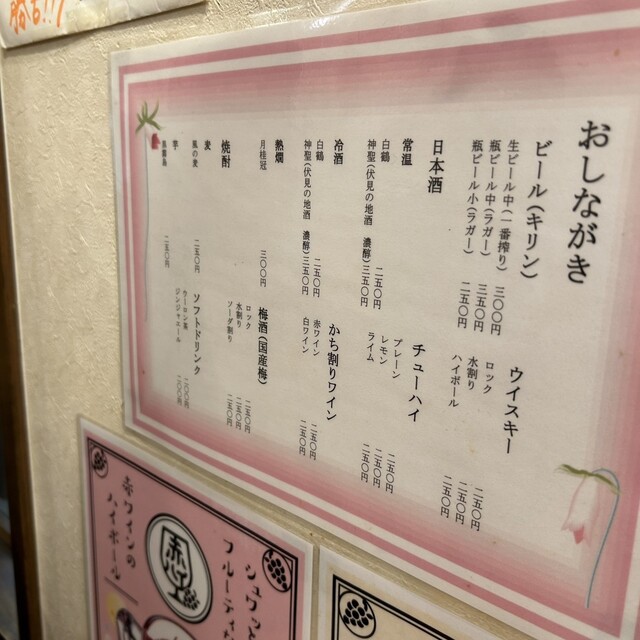 おしながき
ビール(キリン)
生ビール中(一番搾り) 三〇〇円
瓶ビール中(ラガー) 三五〇円
瓶ビール小(ラガー) 二五〇円
ウイスキー
ロック 二五〇円
水割り 二五〇円
ハイボール 二五〇円
日本酒
常温
白鶴 二五〇円
神聖(伏見の地酒 濃醇) 三五〇円
チューハイ
プレーン 二五〇円
レモン 二五〇円
ライム 二五〇円
冷酒
白鶴 二五〇円
神聖(伏見の地酒 濃醇) 三五〇円
かち割りワイン
赤ワイン 二五〇円
白ワイン 二五〇円
熱燗
月桂冠 三〇〇円
梅酒(国産梅)
ロック 二五〇円
水割り 二五〇円
ソーダ割り 二五〇円
焼酎
麦
風の麦 二五〇円
芋
黒霧島 二五〇円
ソフトドリンク
ウーロン茶 一〇〇円
ジンジャエール 一〇〇円
シュワっと
フルーティな
赤ワインの
ハイボール